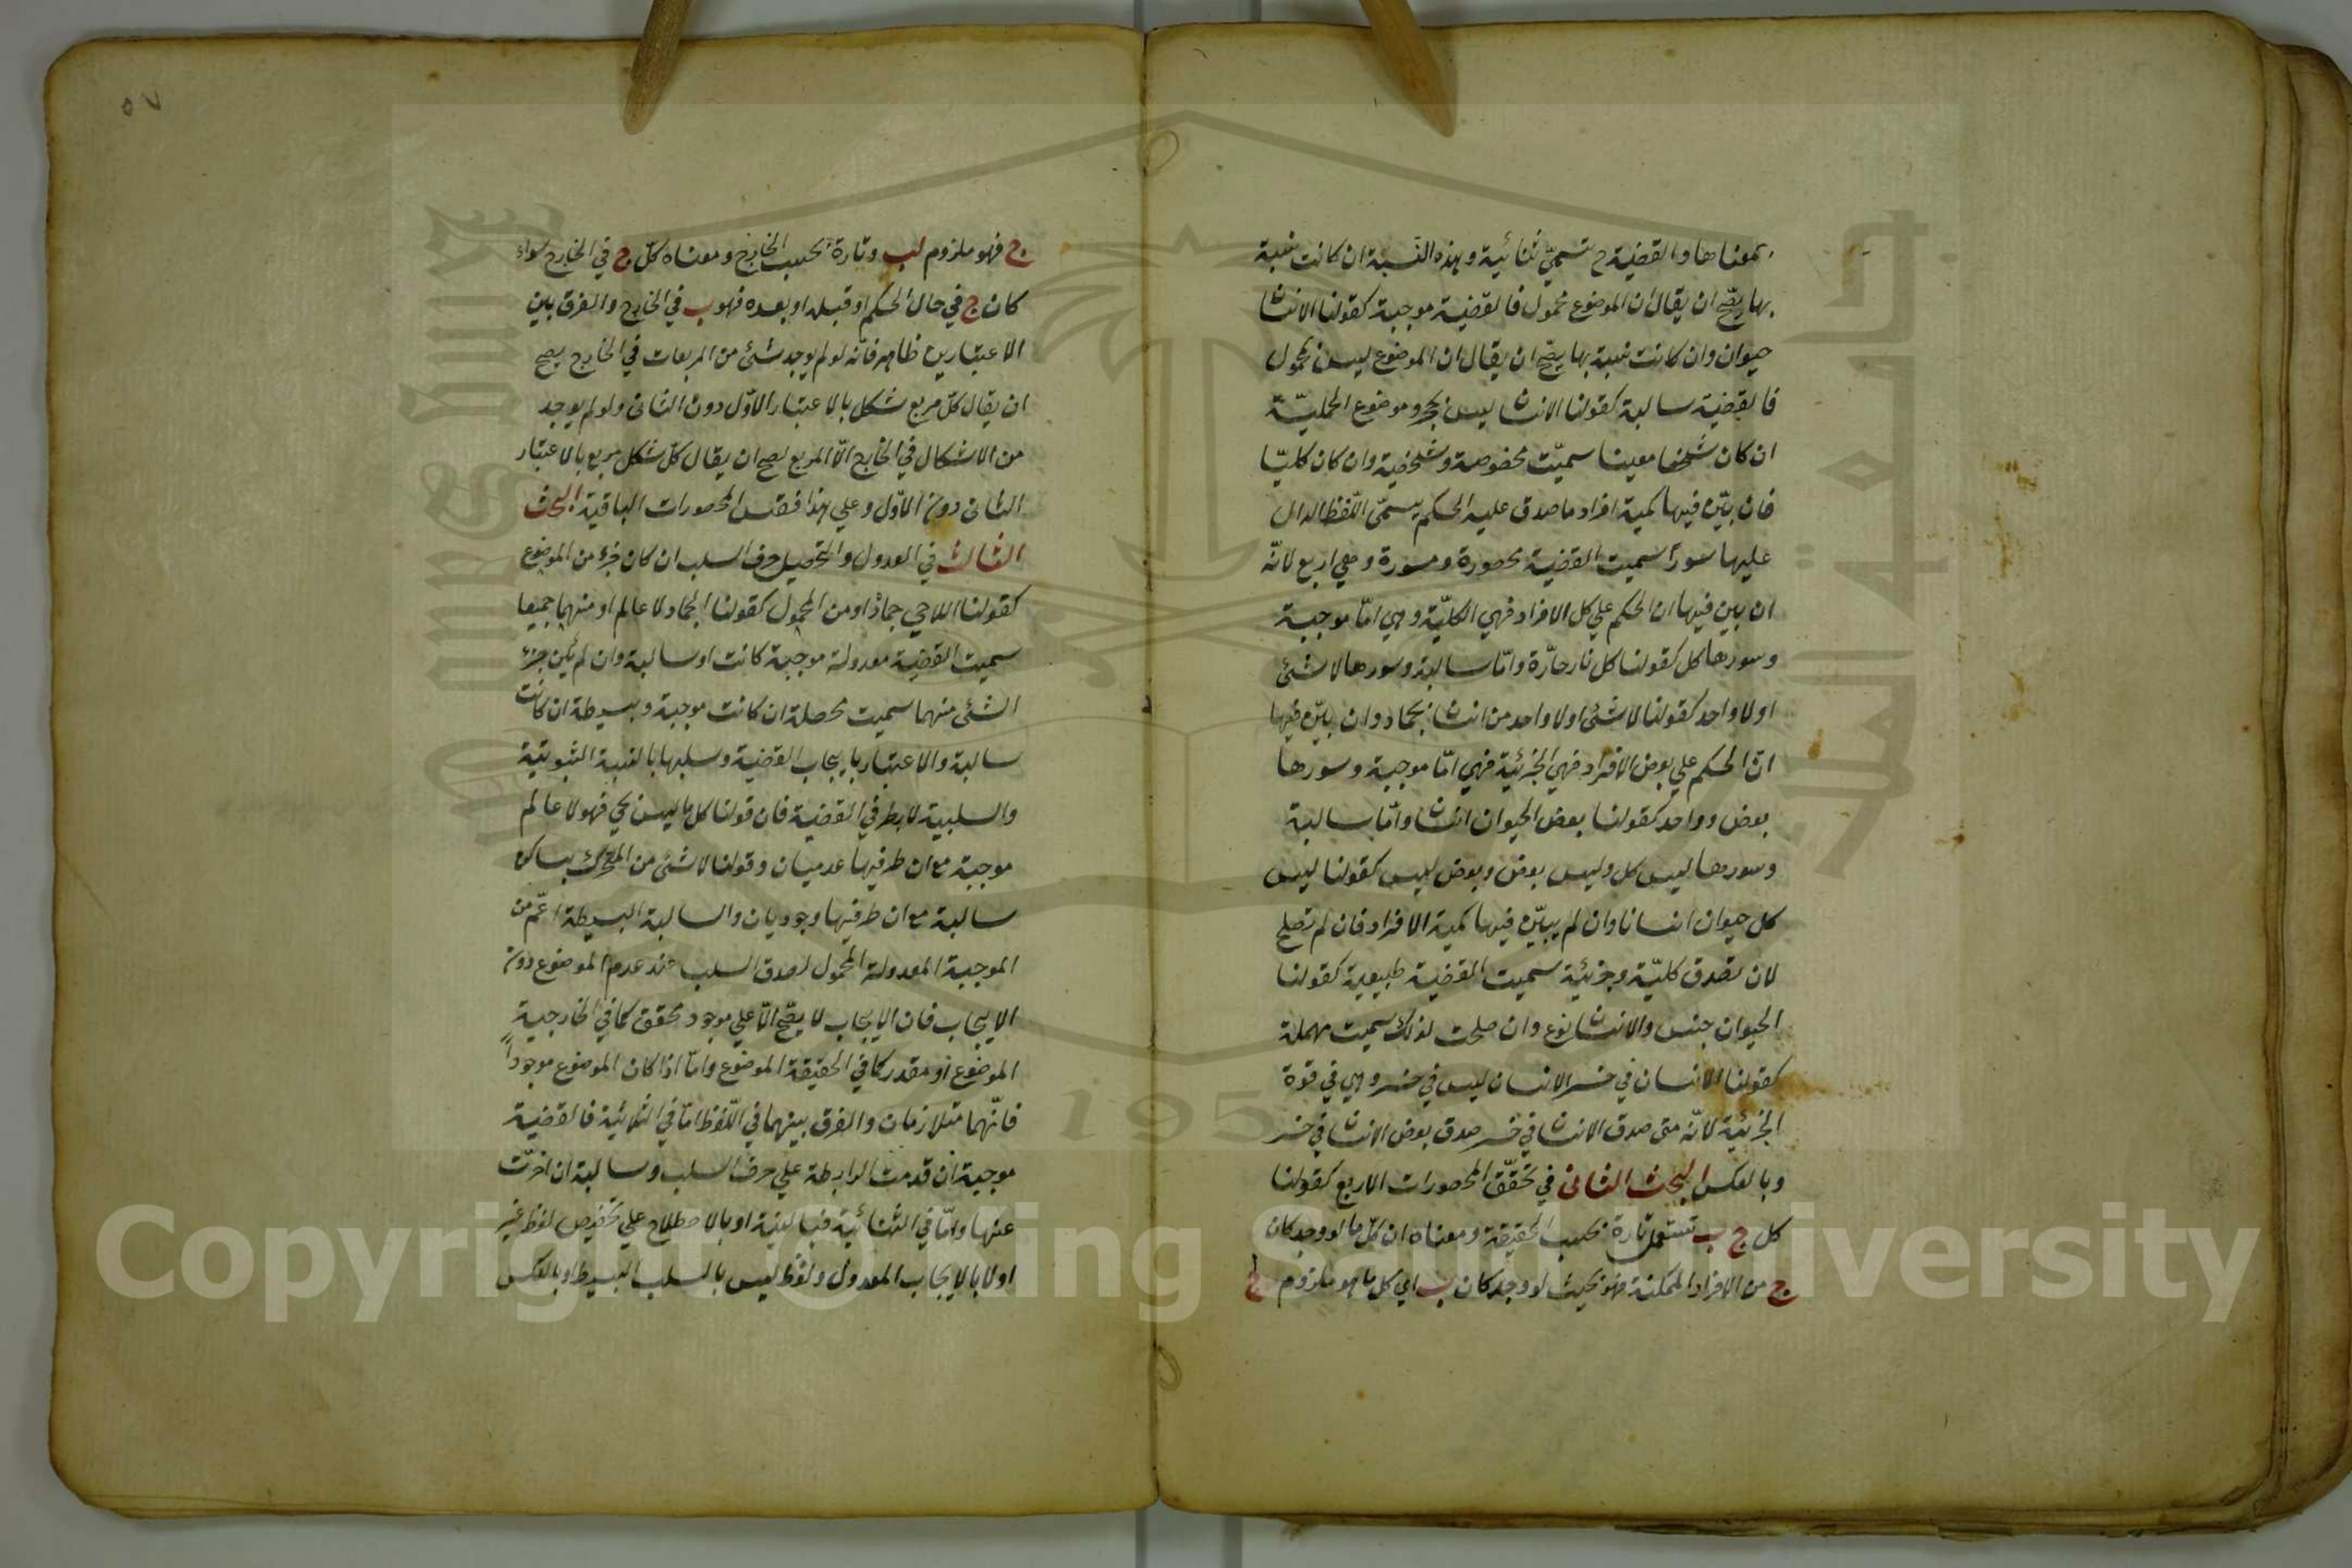 بمعناها والقضية ح تسمي ثنائية وهذه النسبة ان كانت نسبة
بها يصح ان يقال ان الموضوع محمول فالقضية موجبة كقولنا الانسا
حيوان وان كانت نسبة بها يصح ان يقال ان الموضوع ليس بمحمول
فالقضية سالبة كقولنا الانسا ليس بحجر وموضوع الحملية
ان كان شخصا معينا سميت مخصوصة وشخصية وان كان كليا
فان بين فيها كمية افراد ما صدق عليه الحكم يسمى اللفظ الدال
عليها سورا سميت القضية محصورة ومسورة وهي اربع لانه
ان بين فيها ان الحكم علي كل الافراد فهي الكلية وهي اما موجبة
وسورها كل كقولنا كل نار حارة واما سالبة وسورها لا شئ
او لا واحد كقولنا لا شئ او لا واحد من انسا بجماد وان بين فيها
ان الحكم علي بعض الافراد فهي الجزئية فهي اما موجبة وسورها
بعض وواحد كقولنا بعض الحيوان انسا واما سالبة
وسورها ليس كل وليس بعض وبعض ليس كقولنا ليس
كل حيوان انسانا وان لم يبين فيها كمية الافراد فان لم تصلح
لان تصدق كلية وجزئية سميت القضية طبيعية كقولنا
الحيوان جنس والانسا نوع وان صلحت لذلك سميت مهملة
كقولنا الانسان في خسر الانسان ليس في خسر وهي في قوة
الجزئية لانه متى صدق الانسا في خسر صدق بعض الانسا في خسر
وبالعكس البحث الثانى في تحقق المحصورات الاربع كقولنا
كل ج ب تستعمل تارة بحسب الحقيقة ومعناه ان كل ما لو وجد كان
ج من الافراد الممكنة فهو بحيث لو وجد كان ب اي كل ما هو ملزوم ج
٥٧
ج فهو ملزوم لب وتارة بحسب الخارج ومعناه كل ج في الخارج سواء
كان ج في حال الحكم او قبله او بعده فهو ب في الخارج والفرق بين
الاعتبارين ظاهر فانه لو لم يوجد شئ من المربعات في الخارج يصح
ان يقال كل مربع شكل بالاعتبار الاول دون الثانى ولو لم يوجد
من الاشكال في الخارج الا المربع لصح ان يقال كل شكل مربع بالاعتبار
الثانى دون الاول وعلي هذا فقس المحصورات الباقية البحث
الثالث في العدول والتحصيل حرف السلب ان كان جزء من الموضوع
كقولنا اللاحي جماد او من المحمول كقولنا الجماد لا عالم او منهما جميعا
سميت القضية معدولة موجبة كانت او سالبة وان لم يكن جزء
الشئ منهما سميت محصلة ان كانت موجبة وبسيطة ان كانت
سالبة والاعتبار بايجاب القضية وسلبها بالنسبة الثبوتية
والسلبية لا بطرفي القضية فان قولنا كل ما ليس بحي فهو لا عالم
موجبة مع ان طرفيها عدميان وقولنا لا شئ من المتحرك بساكن
سالبة مع ان طرفيها وجوديان والسالبة البسيطة اعم من
الموجبة المعدولة المحمول لصدق السلب عند عدم الموضوع دون
الايجاب فان الايجاب لا يصح الا علي موجود محقق كما في الخارجية
الموضوع او مقدر كما في الحقيقة الموضوع واما اذا كان الموضوع موجودا
فانهما متلازمان والفرق بينهما في اللفظ اما في الثلاثية فالقضية
موجبة ان قدمت الرابطة علي حرف السلب وسالبة ان اخرت
عنها واما في الثنائية فبالنية او بالاصطلاح علي تخصيص لفظ غير
او لا بالايجاب المعدول ولفظ ليس بالسلب البسيط او بالعكس